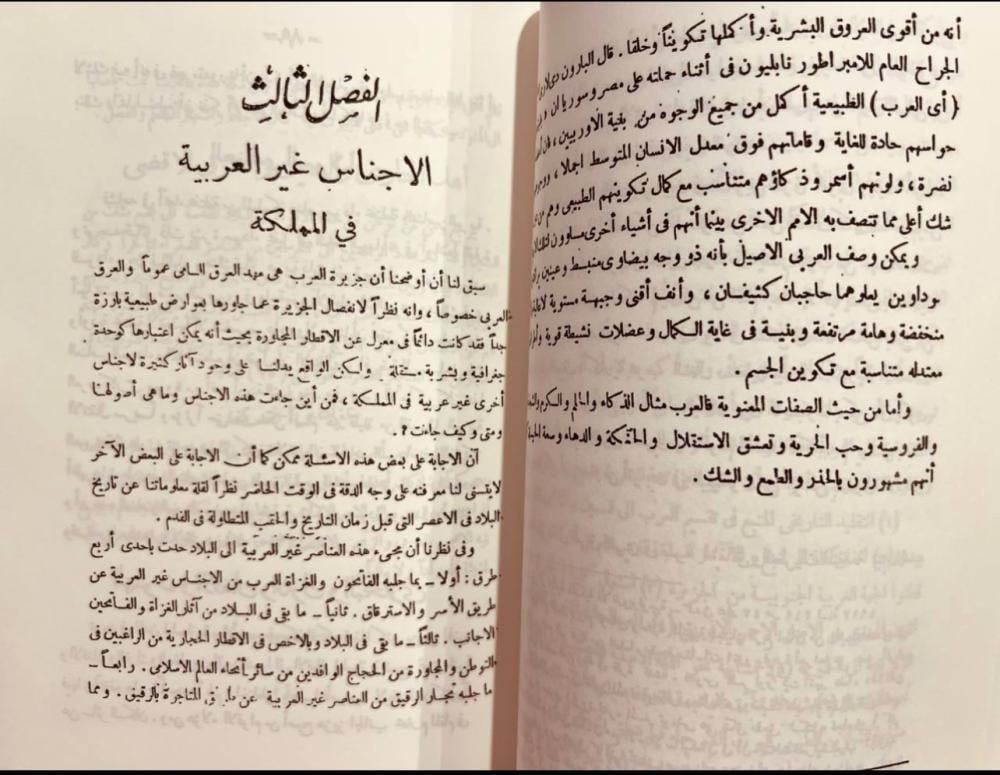 أنه من أقوى العروق البشرية وأكملها تكويناً وخلقا . قال البارون دى لارى
الجراح العام للامبراطور نابليون فى أثناء حملته على مصر وسوريا ان
( أى العرب ) الطبيعية أكمل من جميع الوجوه من بقية الاوربيين ، فان
حواسهم حادة للغاية وقاماتهم فوق معدل الانسان المتوسط اجمالا ،
نضرة ، ولونهم أسمر وذكاؤهم متناسب مع كمال تكوينهم الطبيعى وهم من
شك أعلى مما تتصف به الامم الاخرى بينما أنهم فى أشياء أخرى مساوون
ويمكن وصف العربى الاصيل بأنه ذو وجه بيضاوى منبسط وعينين
سوداوين يعلوهما حاجبان كثيفان ، وأنف أقنى وجبهة مستوية
منخفضة وهامة مرتفعة وبنية فى غاية الكمال وعضلات نشيطة قوية
معتدله متناسبة مع تكوين الجسم .
وأما من حيث الصفات المعنوية فالعرب مثال الذكاء والحلم والكرم
والفروسية وحب الحرية وتعشق الاستقلال والحنكة والدهاء وسعة
أنهم مشهورون بالحذر والطمع والشك .
الفصل الثالث
الاجناس غير العربية
في المملكة
سبق لنا أن أوضحنا أن جزيرة العرب هى مهد العرق السامى عموماً والعرق
العربى خصوصاً ، وانه نظراً لانفصال الجزيرة عما جاورها بعوارض طبيعية بارزة
جداً فقد كانت دائماً فى معزل عن الاقطار المجاورة بحيث أنه يمكن اعتبارها كوحدة
جغرافية وبشرية مستقلة ولكن الواقع يدلنا على وجود آثار كثيرة لاجناس
أخرى غير عربية فى المملكة ، فمن أين جاءت هذه الاجناس وما هى أصولها
ومتى وكيف جاءت ؟ .
ان الاجابة على بعض هذه الاسئلة ممكن كما أن الاجابة على البعض الآخر
لايتسنى لنا معرفته على وجه الدقة فى الوقت الحاضر نظراً لقلة معلوماتنا عن تاريخ
البلاد فى الاعصر التى قبل زمان التاريخ والحقب المتطاولة فى القدم .
وفى نظرنا أن مجىء هذه العناصر غير العربية الى البلاد حدث باحدى أربع
طرق : أولا ـ بما جلبه الفاتحون والغزاة العرب من الاجناس غير العربية عن
طريق الأسر والاسترقاق . ثانياً ـ ما بقى فى البلاد من آثار الغزاة والفاتحين
الاجانب . ثالثاً ـ ما بقى فى البلاد وبالاخص فى الاقطار الحجازية من الراغبين فى
التوطن والمجاورة من الحجاج الوافدين من سائر أنحاء العالم الاسلامى . رابعاً ـ
ما جلبه تجار الرقيق من العناصر غير العربية عن طريق المتاجرة بالرقيق . ومما